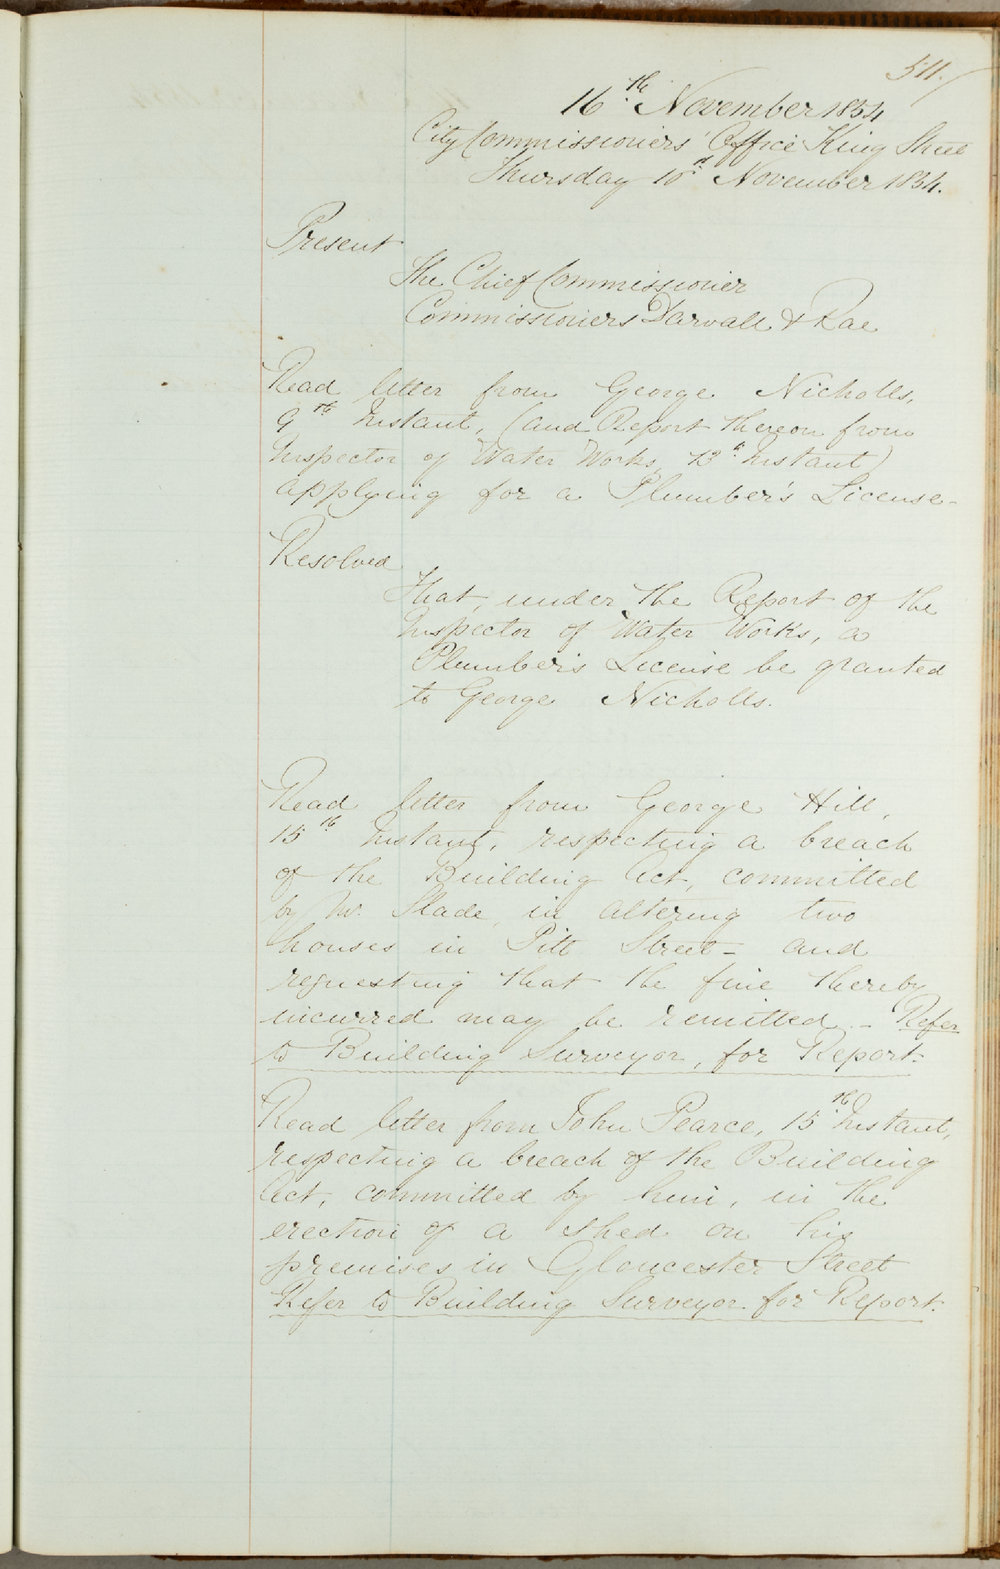 511.
16th November 1854
City Commissioners' Office King Street
Thursday 16th November 1854.
Present
The Chief Commissioner
Commissioners Darvall & Rae
Read letter from George Nicholls,
9th Instant, (and Report thereon from
Inspector of Water Works, 13th Instant)
applying for a Plumber's License-
Resolved
That, under the Report of the
Inspector of Water Works, a
Plumber's License be granted
to George Nicholls.
Read letter from George Hill,
15th Instant, respecting a breach
of the Building Act, committed
by Mr. Slade, in altering two
houses in Pitt Street - and
requesting that the fine thereby
incurred may be remitted. - Refer
to Building Surveyor, for Report.
Read letter from John Pearce, 15th Instant,
respecting a breach of the Building
Act, committed by him, in the
erection of a shed on his
premises in Gloucester Street
Refer to Building Surveyor for Report.